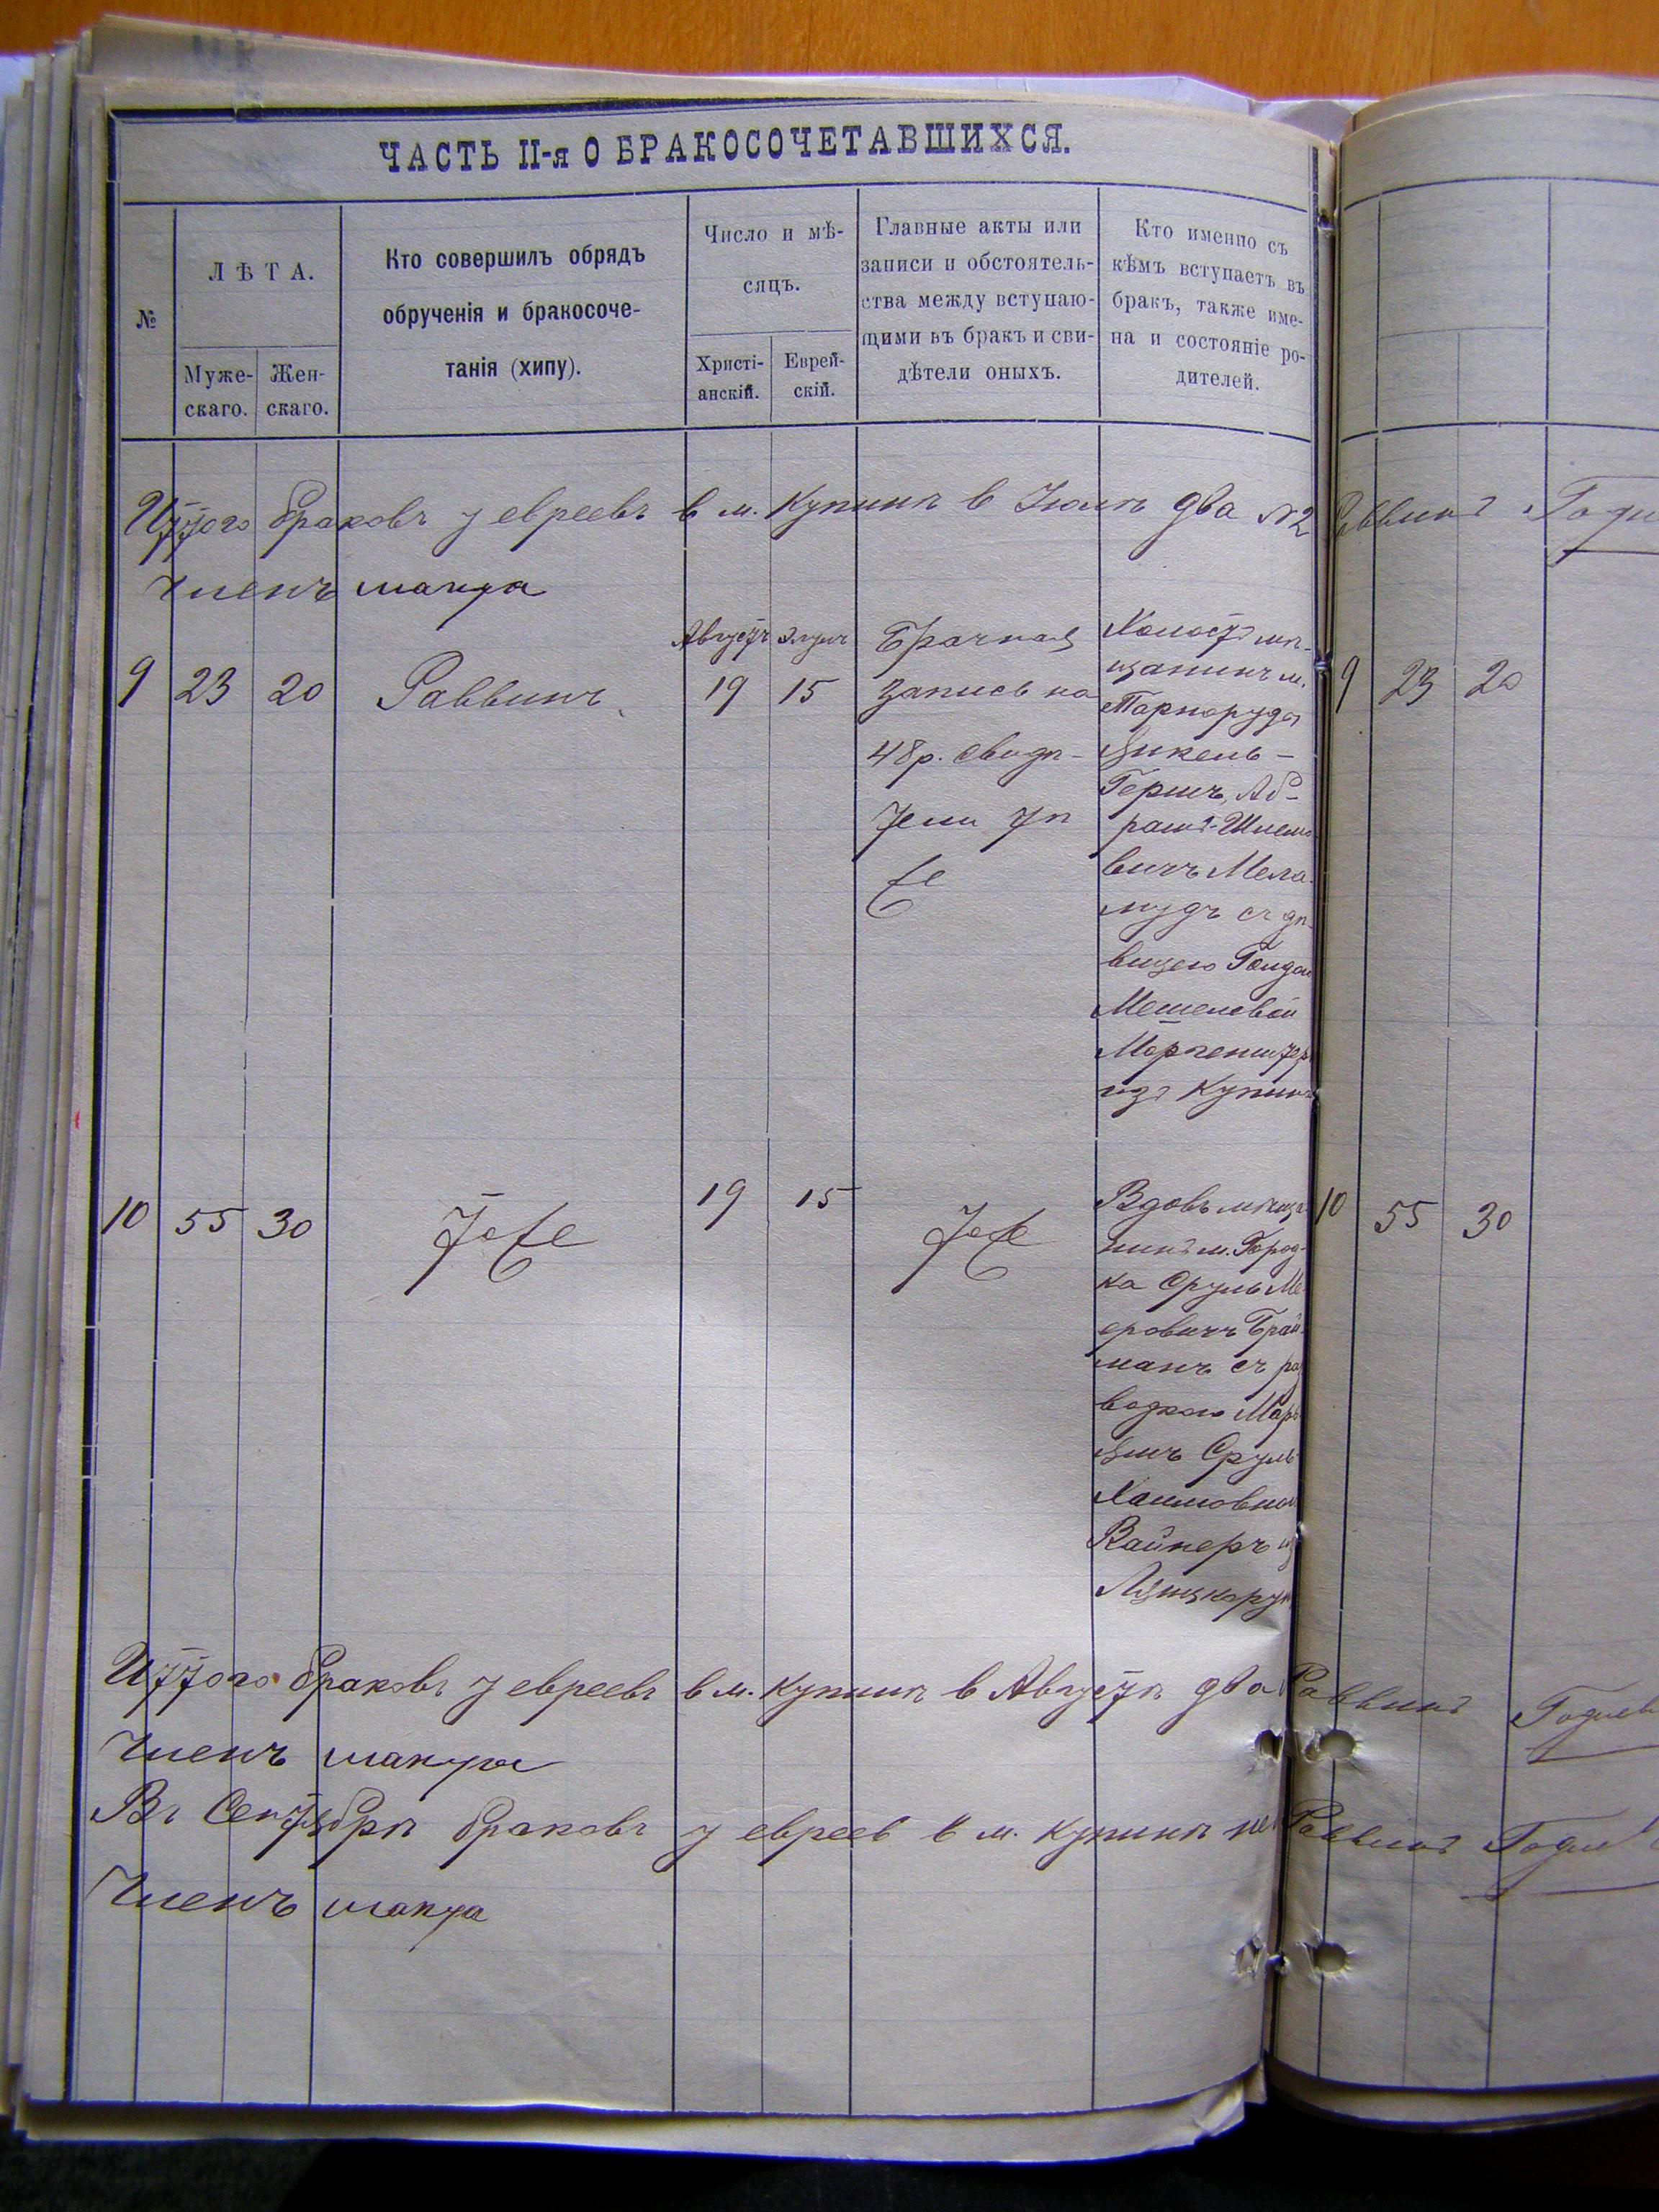 ЧАСТЬ II-я О БРАКОСОЧЕТАВШИХСЯ.
№
ЛѢТА.
Муже-
скаго.
Жен-
скаго.
Кто совершилъ обрядъ
обрученія и бракосоче-
танія (хипу).
Число и мѣ-
сяцъ.
Христі-
анскій.
Еврей-
скій.
Главные акты или
записи и обстоятель-
ства между вступаю-
щими въ бракъ и сви-
дѣтели оныхъ.
Кто именно съ
кѣмъ вступаетъ въ
бракъ, также име-
на и состояніе ро-
дителей.
Итого браковъ у евреевъ в м. Купинѣ в Іюлѣ два №2 Раввинъ
Членъ
9 23 20 Раввинъ
Августъ Элулъ
19 15
Брачная
запись на
48р. свидѣ-
тели тѣ
же
Холостъ мѣ-
щанинъ м.
Тарноруда
Янкель-
Гершъ, Аб-
рамъ-Шлемо
вичъ Мела-
мудъ съ дѣ-
вицею Голдою
Мешеловой
Моргенштер
изъ Купина
9 23 20
10 55 30 Тоже
19 15
Тоже
Вдовъ мѣща-
нинъ м. Город-
ка Сруль Ме-
еровичъ Брай-
манъ съ раз
водкою Марь
ямъ Сруль
Хаимовной
Вайнеръ из
10 55 30
Итого браковъ у евреевъ в м. Купинѣ в Августѣ два Раввинъ
Членъ
Въ Сентябрѣ браковъ у евреев в м. Купинѣ нет Раввинъ
Членъ